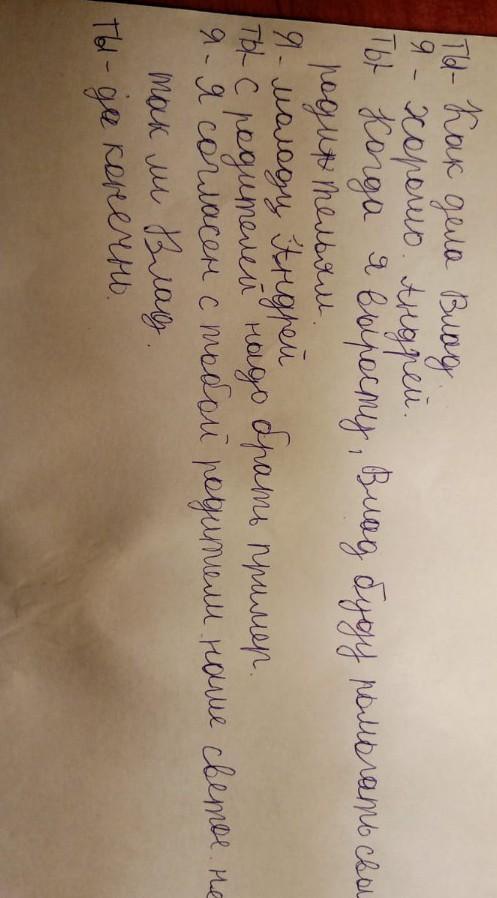 Ты - Как дела Влад.
Я - хорошо. Андрей.
Ты Когда я вырасту, Влад буду помогать свои
родительям.
Я - молодц Андрей
Ты С родителей надо брать пример.
Я - Я согласен с тобой родители наше светое. не
так ли Влад.
Ты - да конечнь.